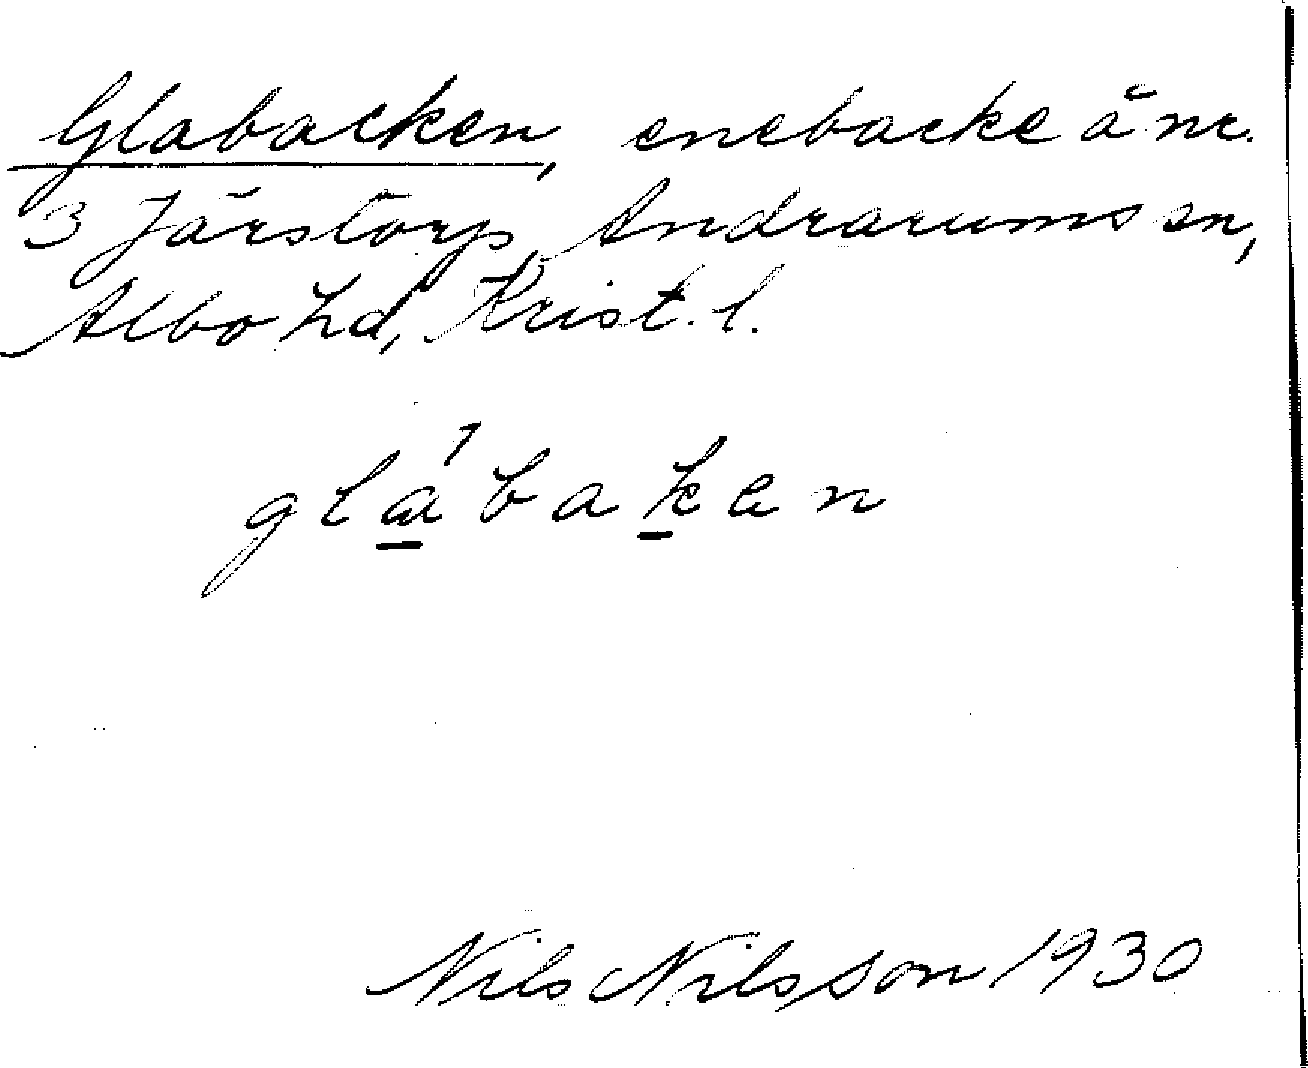 Glabacken, enebacke å nr.
3 Järstorp, Andrarums sn,
Albo hd, Krist. l.
glábaken
Nils Nilsson 1930